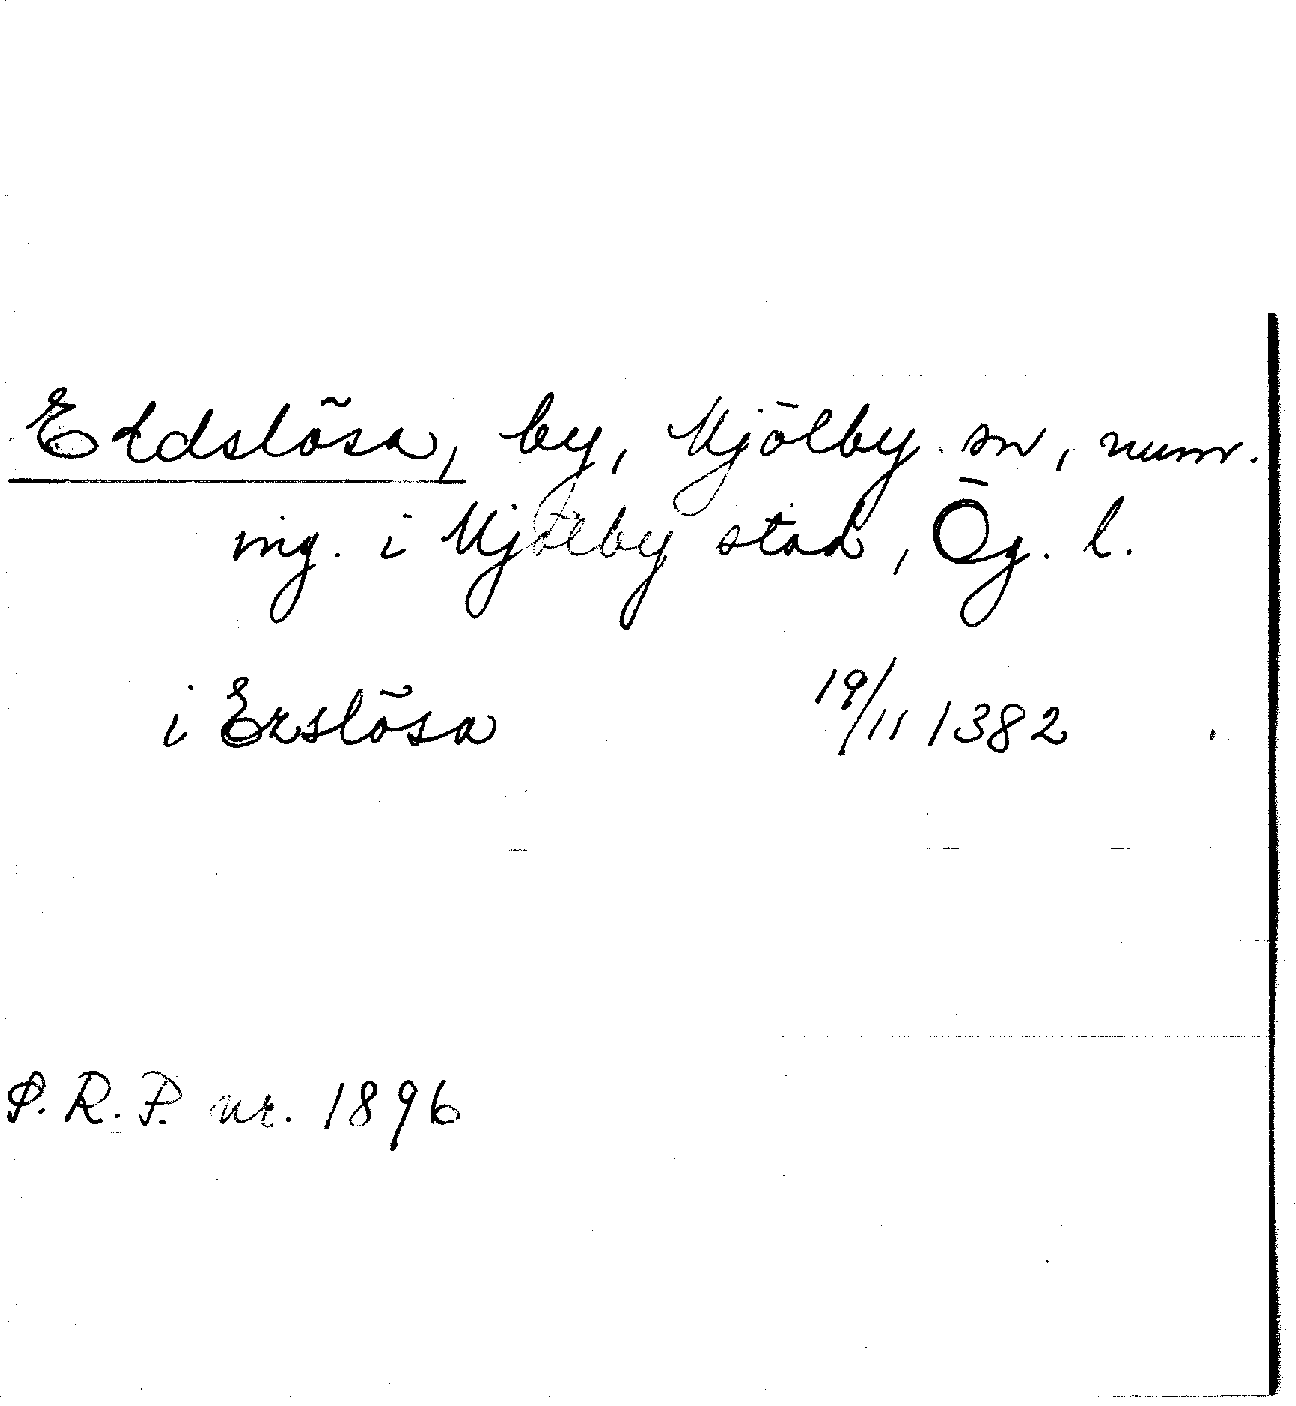 Eldslösa, by, Mjölby sn, num.
ing. i Mjölby stad, Ög. l.
i Erslösa 19/11 1382
S.R.P. nr. 1896